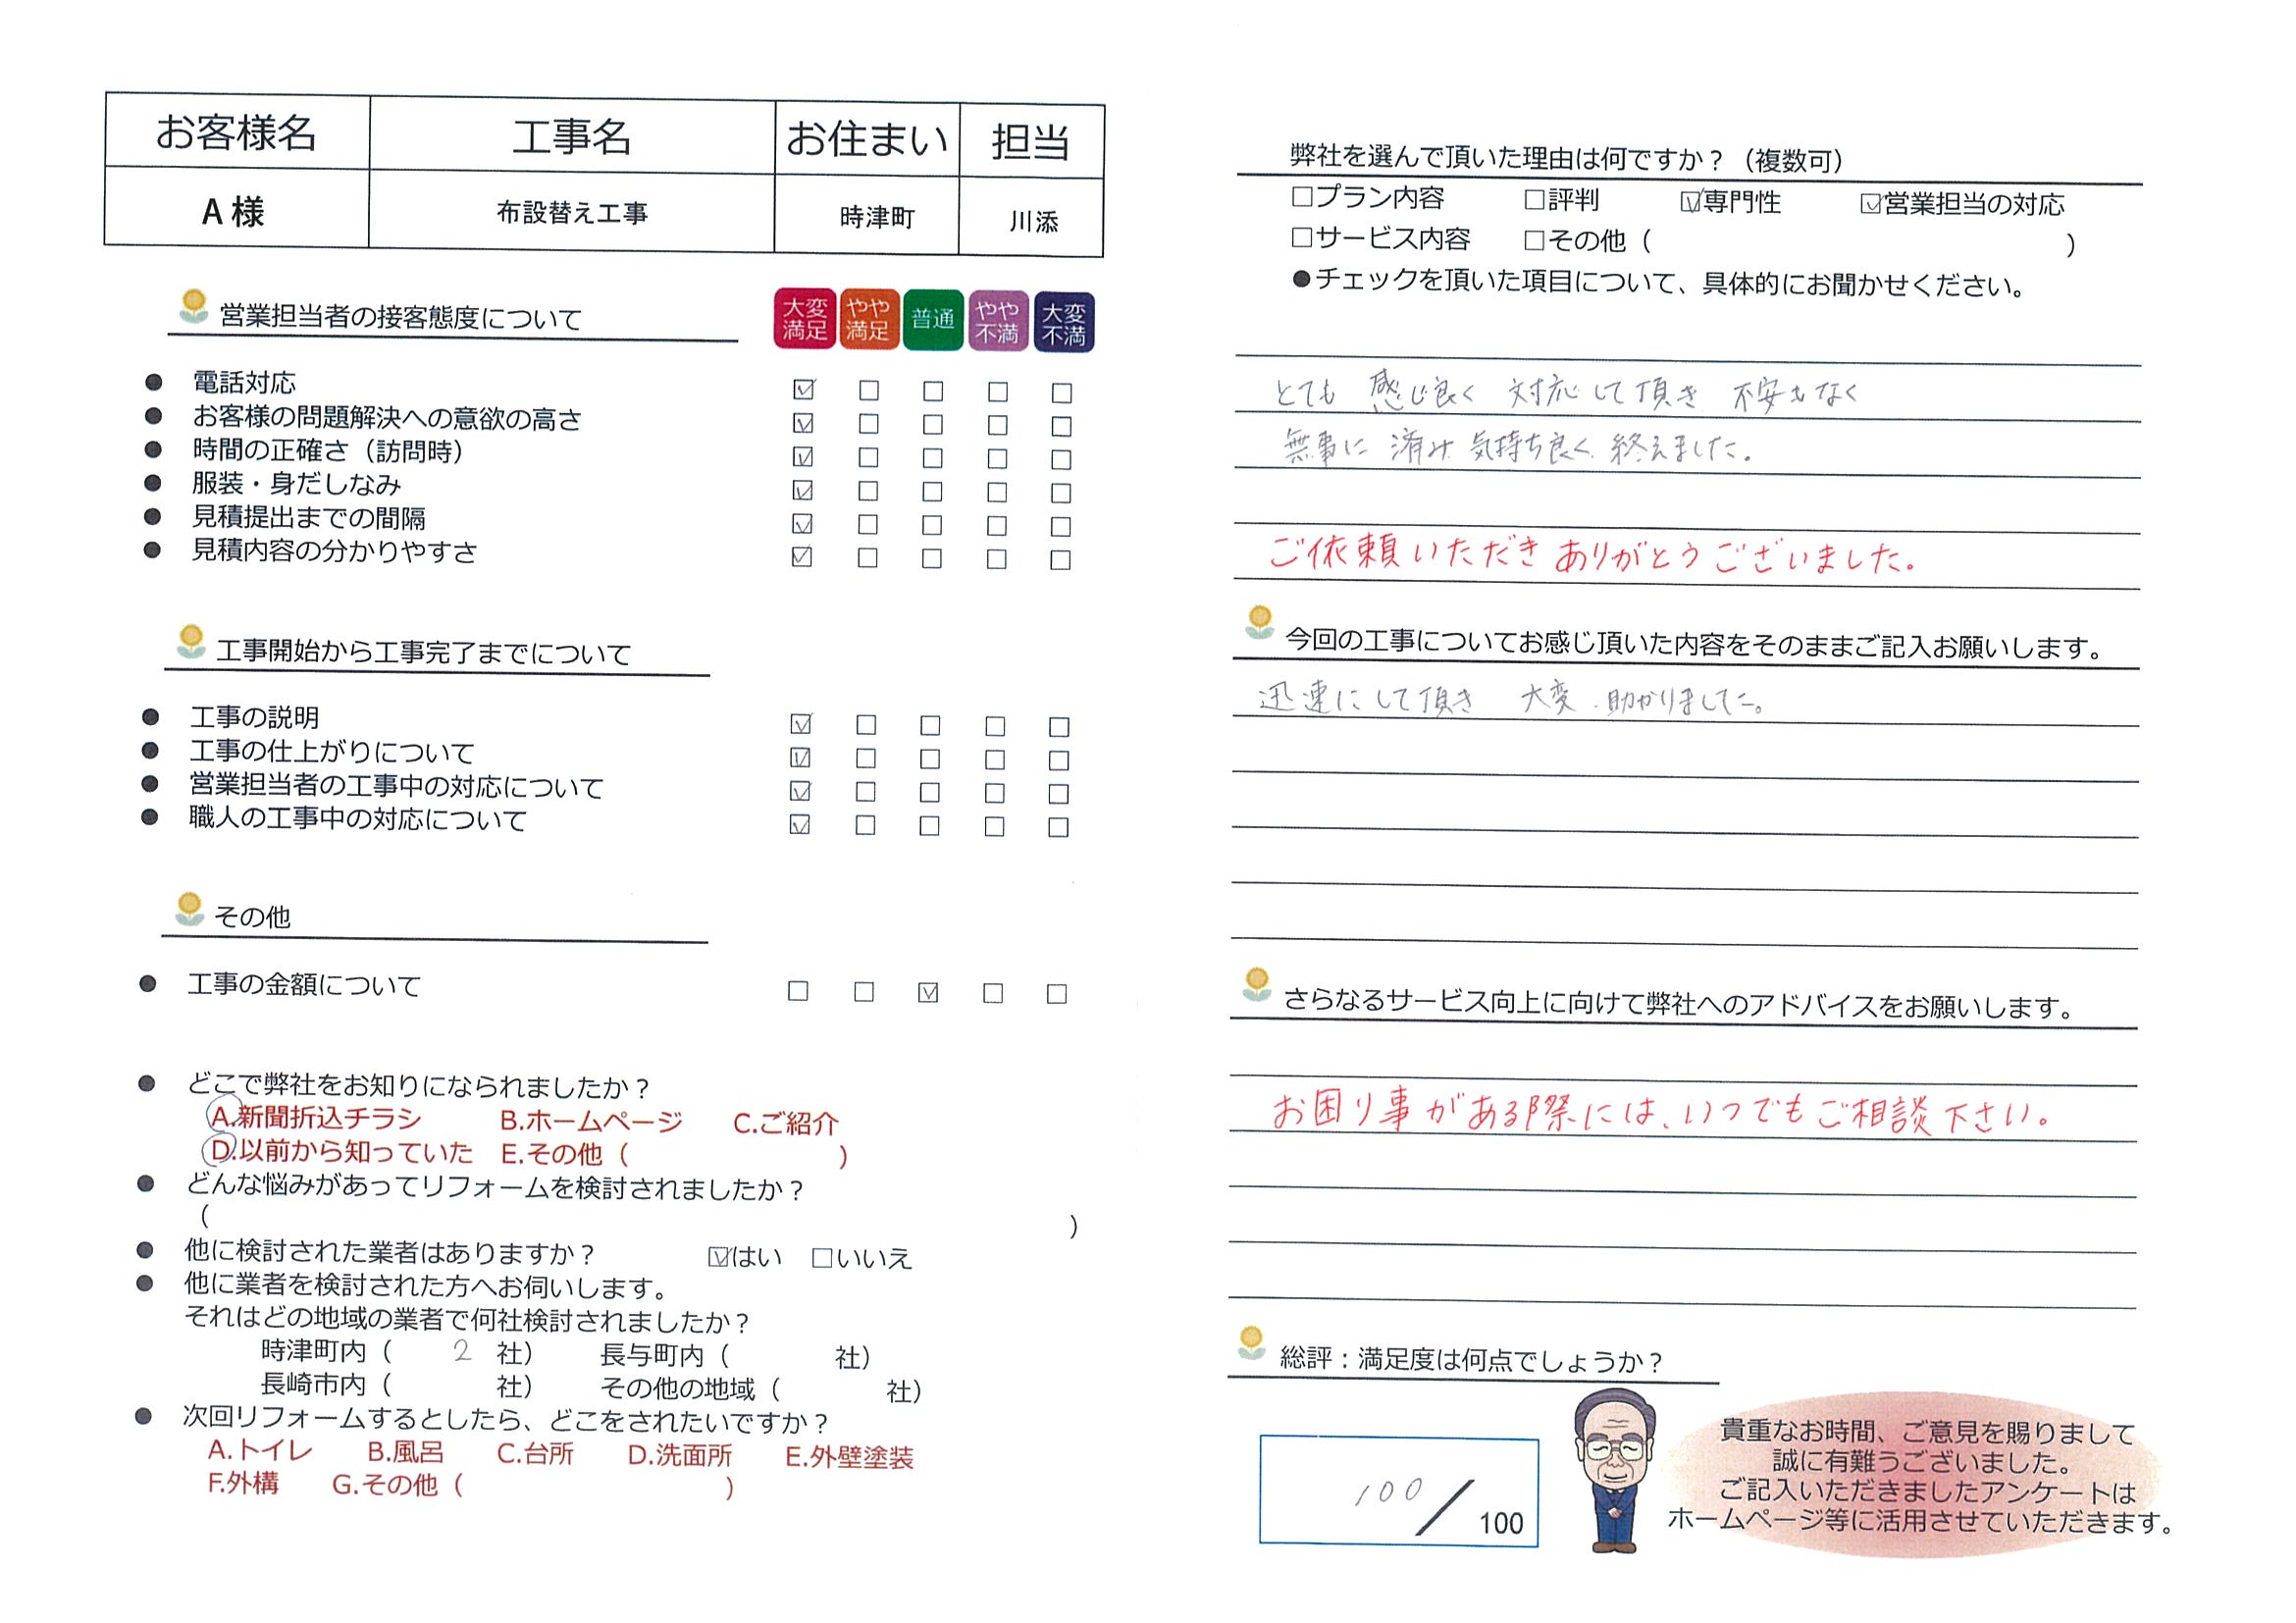 お客様名 工事名 お住まい 担当
A様 布設替え工事 時津町 川添
営業担当者の接客態度について
大変満足 やや満足 普通 やや不満 大変不満
● 電話対応 ☑ □ □ □ □
● お客様の問題解決への意欲の高さ ☑ □ □ □ □
● 時間の正確さ（訪問時） ☑ □ □ □ □
● 服装・身だしなみ ☑ □ □ □ □
● 見積提出までの間隔 ☑ □ □ □ □
● 見積内容の分かりやすさ ☑ □ □ □ □
工事開始から工事完了までについて
● 工事の説明 ☑ □ □ □ □
● 工事の仕上がりについて ☑ □ □ □ □
● 営業担当者の工事中の対応について ☑ □ □ □ □
● 職人の工事中の対応について ☑ □ □ □ □
その他
● 工事の金額について □ □ ☑ □ □
● どこで弊社をお知りになられましたか？
A.新聞折込チラシ B.ホームページ C.ご紹介
D.以前から知っていた E.その他（ ）
● どんな悩みがあってリフォームを検討されましたか？
（ ）
● 他に検討された業者はありますか？ ☑はい □いいえ
● 他に業者を検討された方へお伺いします。
それはどの地域の業者で何社検討されましたか？
時津町内（ 2 社） 長与町内（ 社）
長崎市内（ 社） その他の地域（ 社）
● 次回リフォームするとしたら、どこをされたいですか？
A.トイレ B.風呂 C.台所 D.洗面所 E.外壁塗装
F.外構 G.その他（ ）
弊社を選んで頂いた理由は何ですか？（複数可）
□プラン内容 □評判 ☑専門性 ☑営業担当の対応
□サービス内容 □その他（ ）
●チェックを頂いた項目について、具体的にお聞かせください。
とても 感じ良く 対応して頂き 不安もなく
無事に 済み 気持ち良く 終えました。
ご依頼いただき ありがとうございました。
今回の工事についてお感じ頂いた内容をそのままご記入お願いします。
迅速にして頂き 大変 助かりました。
さらなるサービス向上に向けて弊社へのアドバイスをお願いします。
お困り事がある際には、いつでもご相談下さい。
総評：満足度は何点でしょうか？
100／100
貴重なお時間、ご意見を賜りまして
誠に有難うございました。
ご記入いただきましたアンケートは
ホームページ等に活用させていただきます。